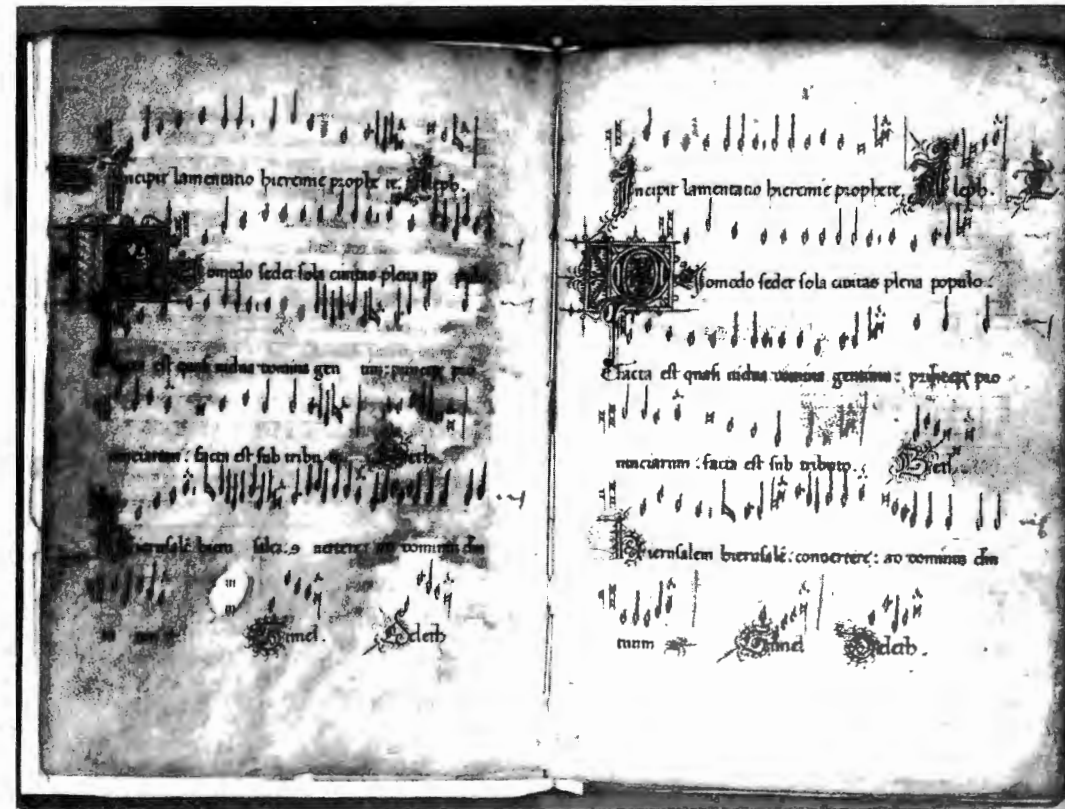 Incipit lamentatio hieremie prophe te. Aleph.
Quomodo sedet sola civitas plena po pulo
facta est quasi vidua domina gen tium: princeps pro
vinciarum: facta est sub tribu to. Beth.
Hierusalē hieru salē:
ad dominum dm̄
Gimel. Deleth
Incipit lamentatio hieremie prophete. Aleph.
Quomodo sedet sola civitas plena populo.
Efacta est quasi vidua domina gentium: princeps pro
vinciarum: facta est sub tributo. Beth.
Hierusalem hierusalē: convertere: ad dominum dm̄
tuum Gimel Deleth.